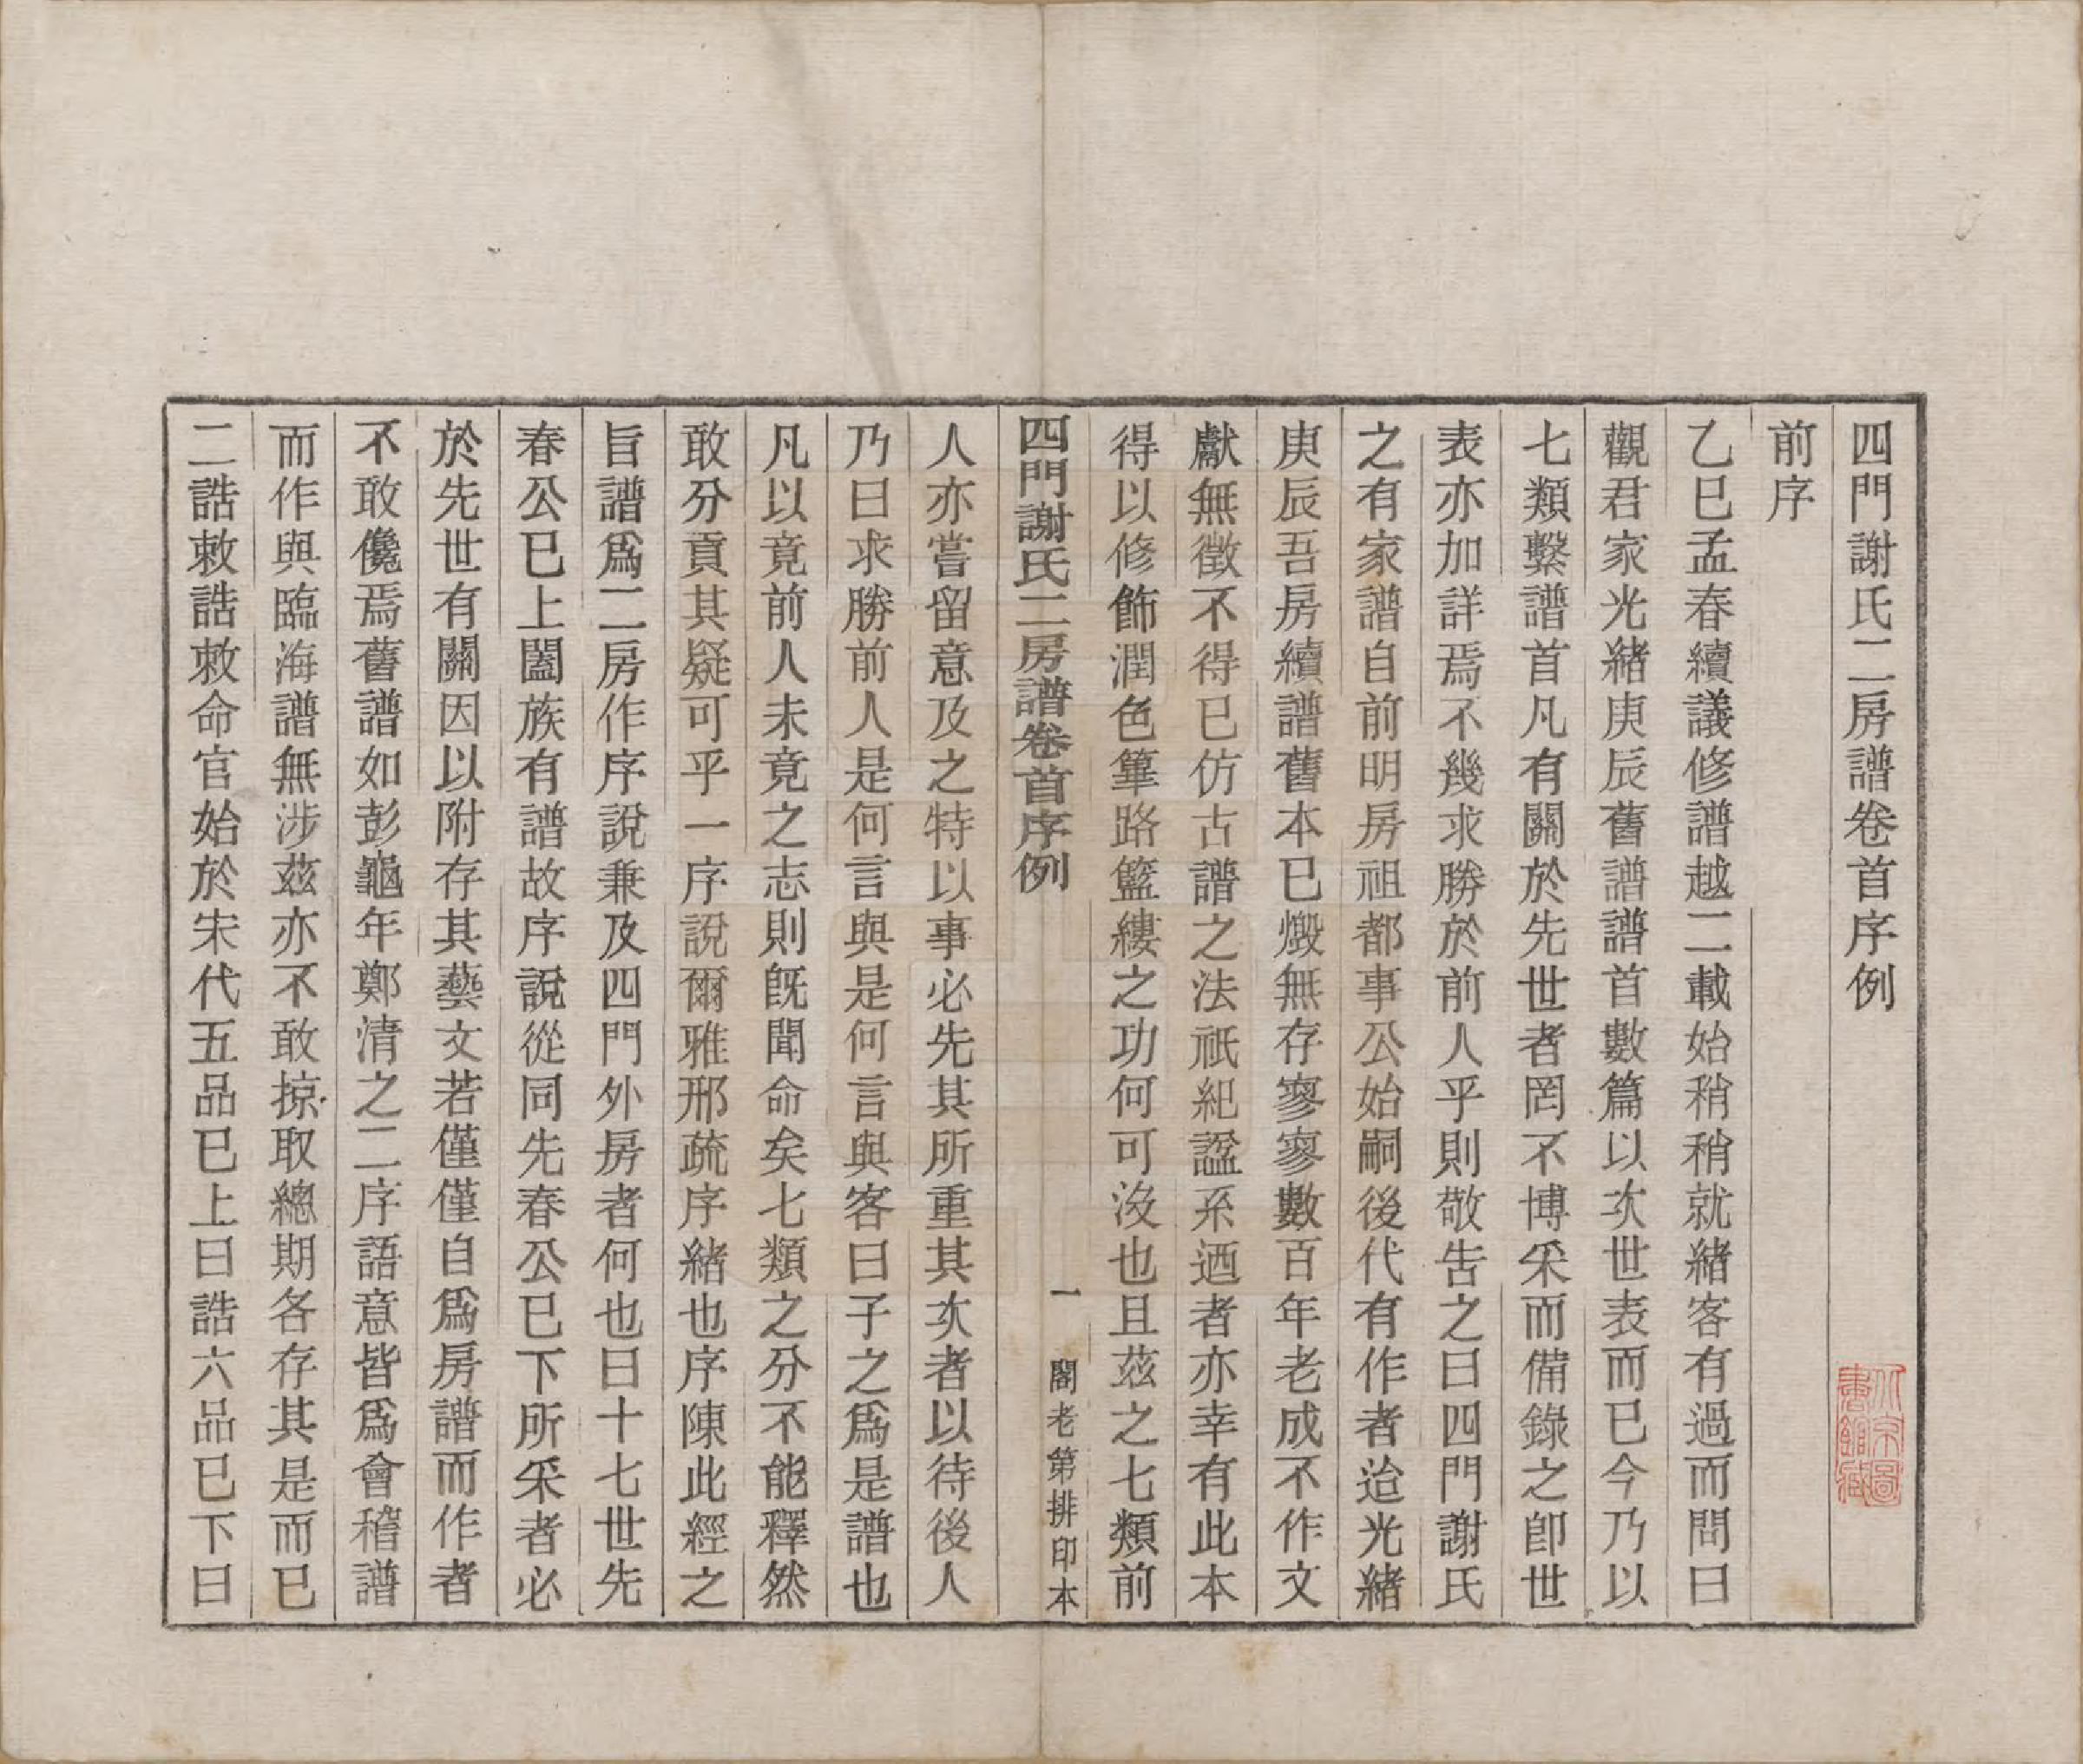 四門謝氏二房譜卷首序例
前序
乙巳孟春續議修譜越二載始稍稍就緒客有過而問曰
觀君家光緒庚辰舊譜譜首數篇以次世表而已今乃以
七類繫譜首凡有關於先世者罔不博采而備錄之卽世
表亦加詳焉不幾求勝於前人乎則敬告之曰四門謝氏
之有家譜自前明房祖都事公始嗣後代有作者迨光緒
庚辰吾房續譜舊本已燬無存寥寥數百年老成不作文
獻無徵不得已仿古譜之法祇紀諡系迺者亦幸有此本
得以修飾潤色篳路籃縷之功何可沒也且茲之七類前
四門謝氏二房譜卷首序例
一
閣老第排印本
人亦嘗留意及之特以事必先其所重其次者以待後人
乃曰求勝前人是何言與是何言與客曰子之爲是譜也
凡以竟前人未竟之志則旣聞命矣七類之分不能釋然
敢分貢其疑可乎一序說爾雅邢疏序緒也序陳此經之
旨譜爲二房作序說兼及四門外房者何也曰十七世先
春公已上闔族有譜故序說從同先春公已下所采者必
於先世有關因以附存其藝文若僅僅自爲房譜而作者
不敢儳焉舊譜如彭龜年鄭清之二序語意皆爲會稽譜
而作與臨海譜無涉茲亦不敢掠取總期各存其是而已
二誥敕誥敕命官始於宋代五品已上曰誥六品已下曰